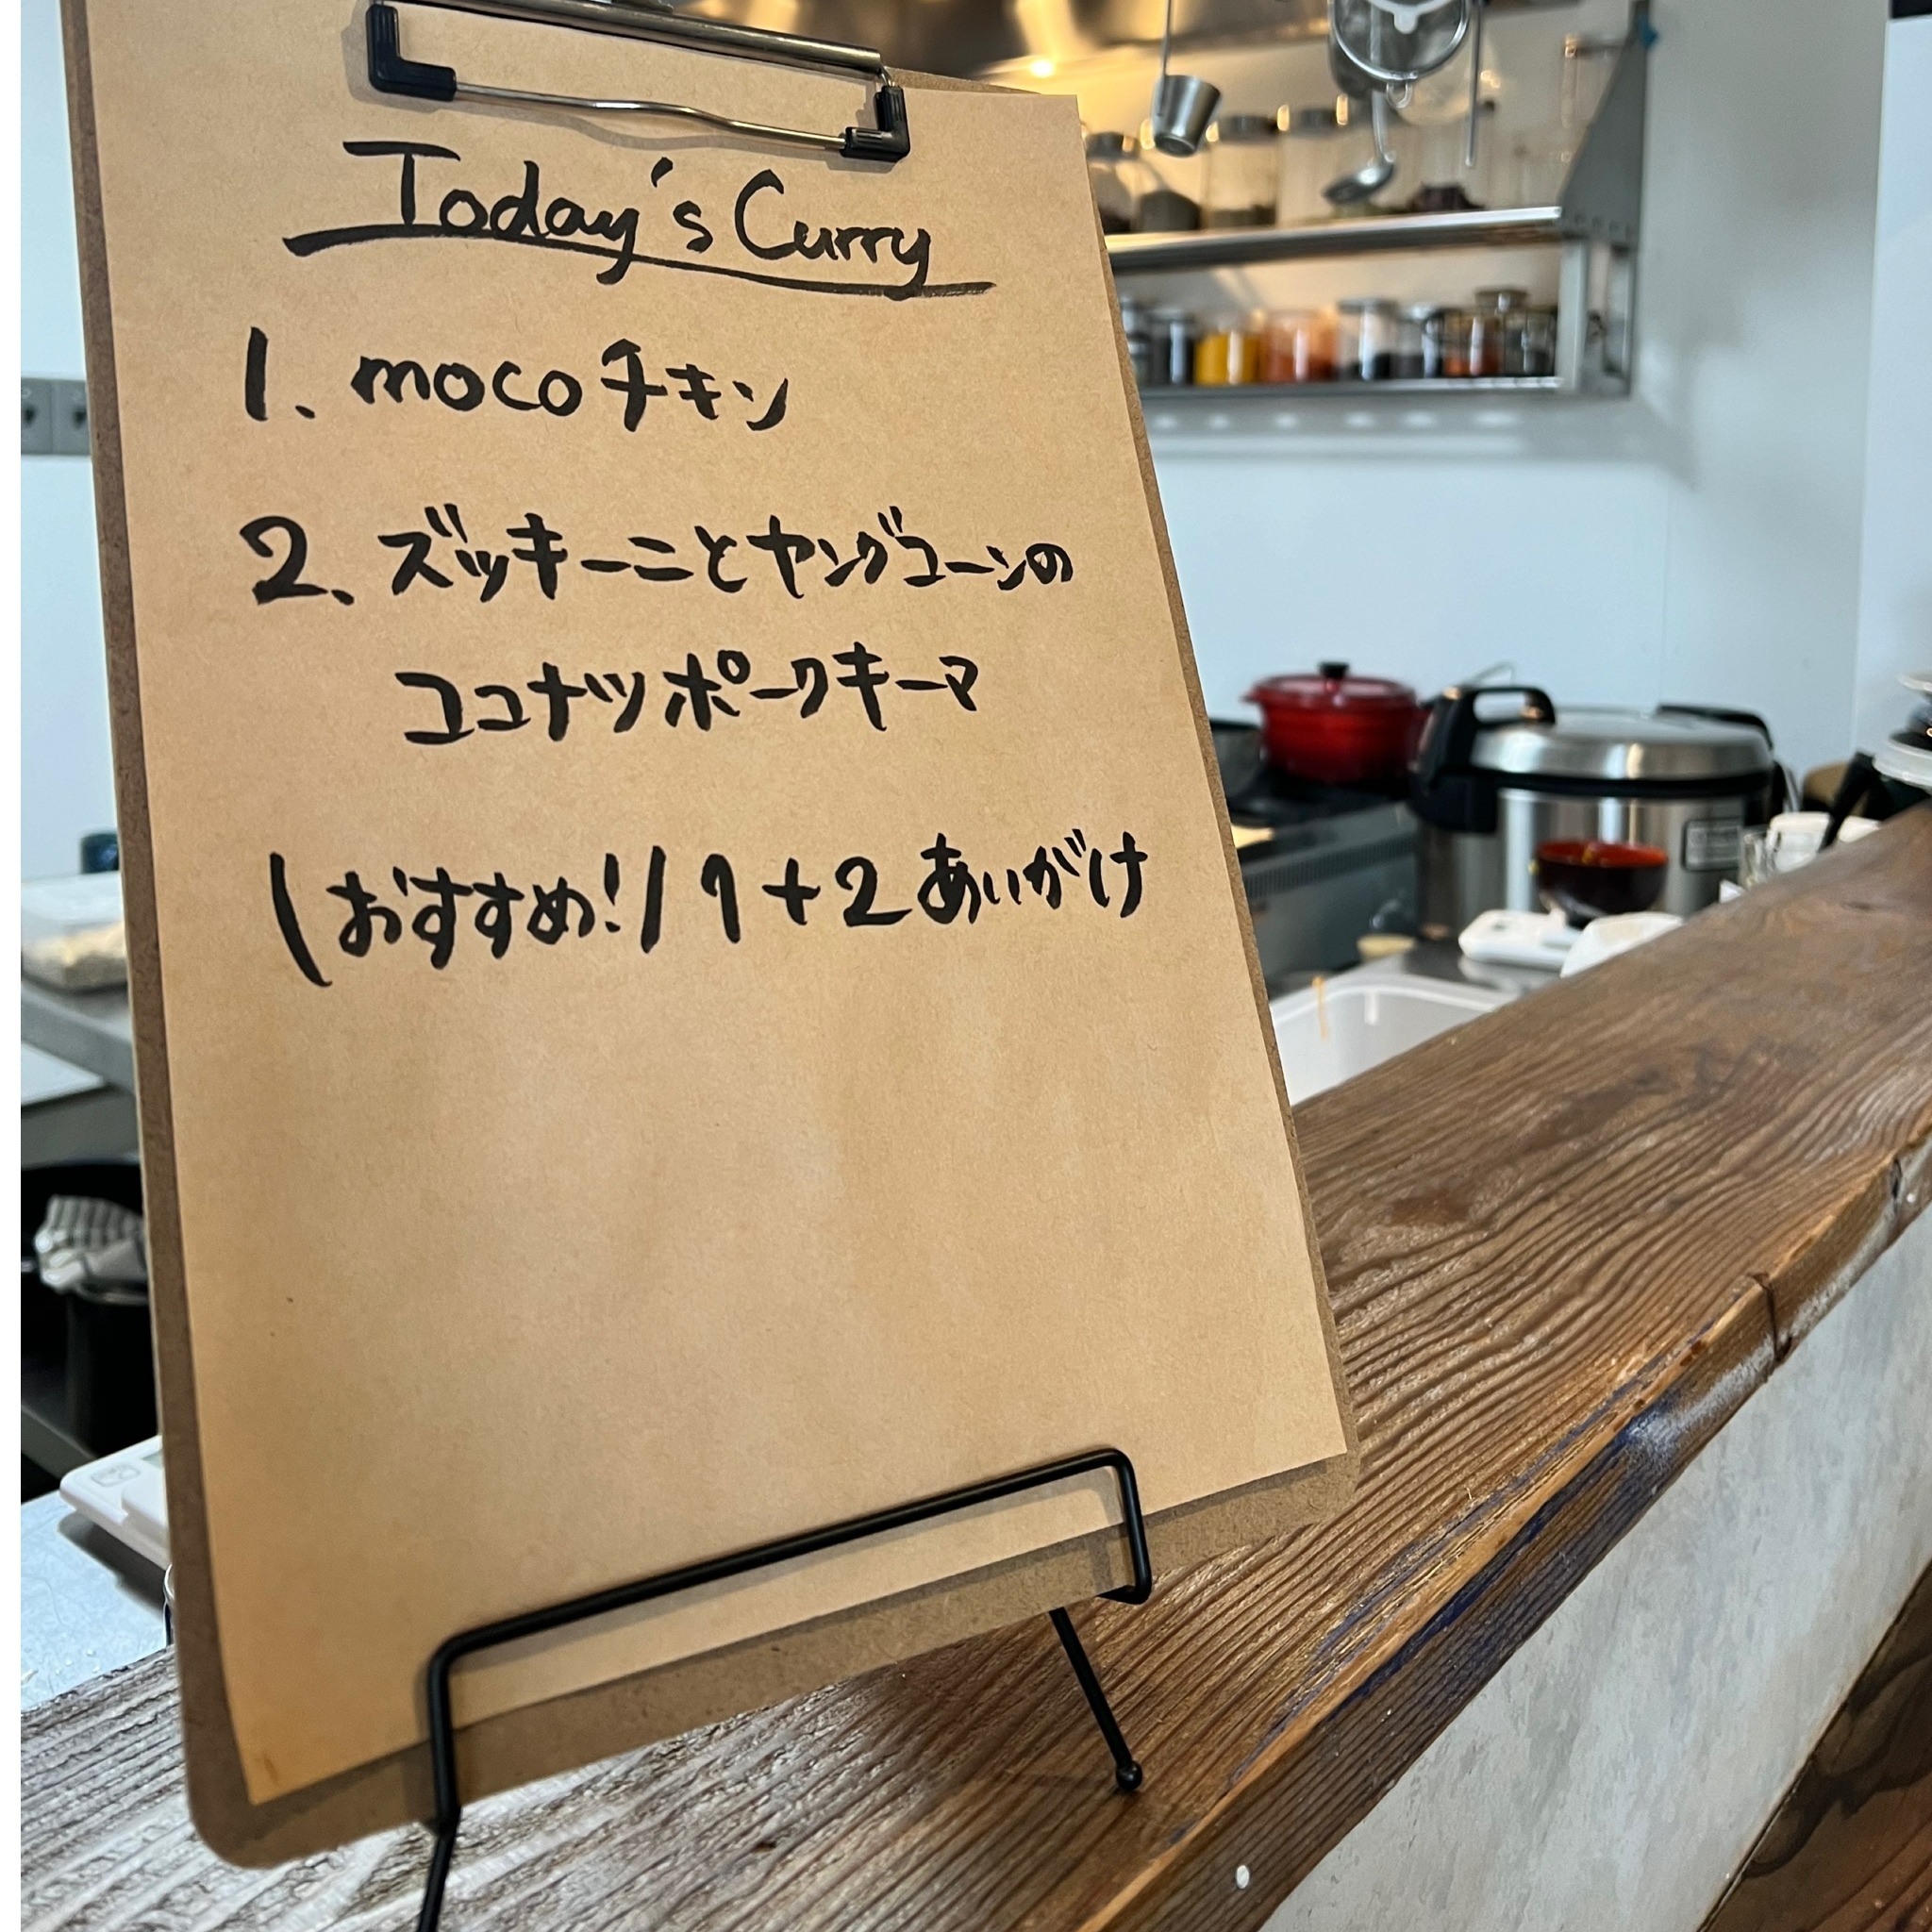 Today's Curry
1. mocoチキン
2. ズッキーニとヤングコーンの
ココナツポークキーマ
\おすすめ!/ 1+2 あいがけ